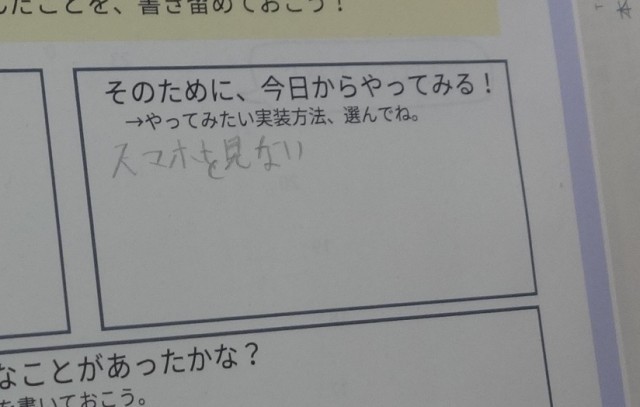 たことを、書き留めておこう！
そのために、今日からやってみる！
→やってみたい実装方法、選んでね。
スマホを見ない
なことがあったかな？
を書いておこう。